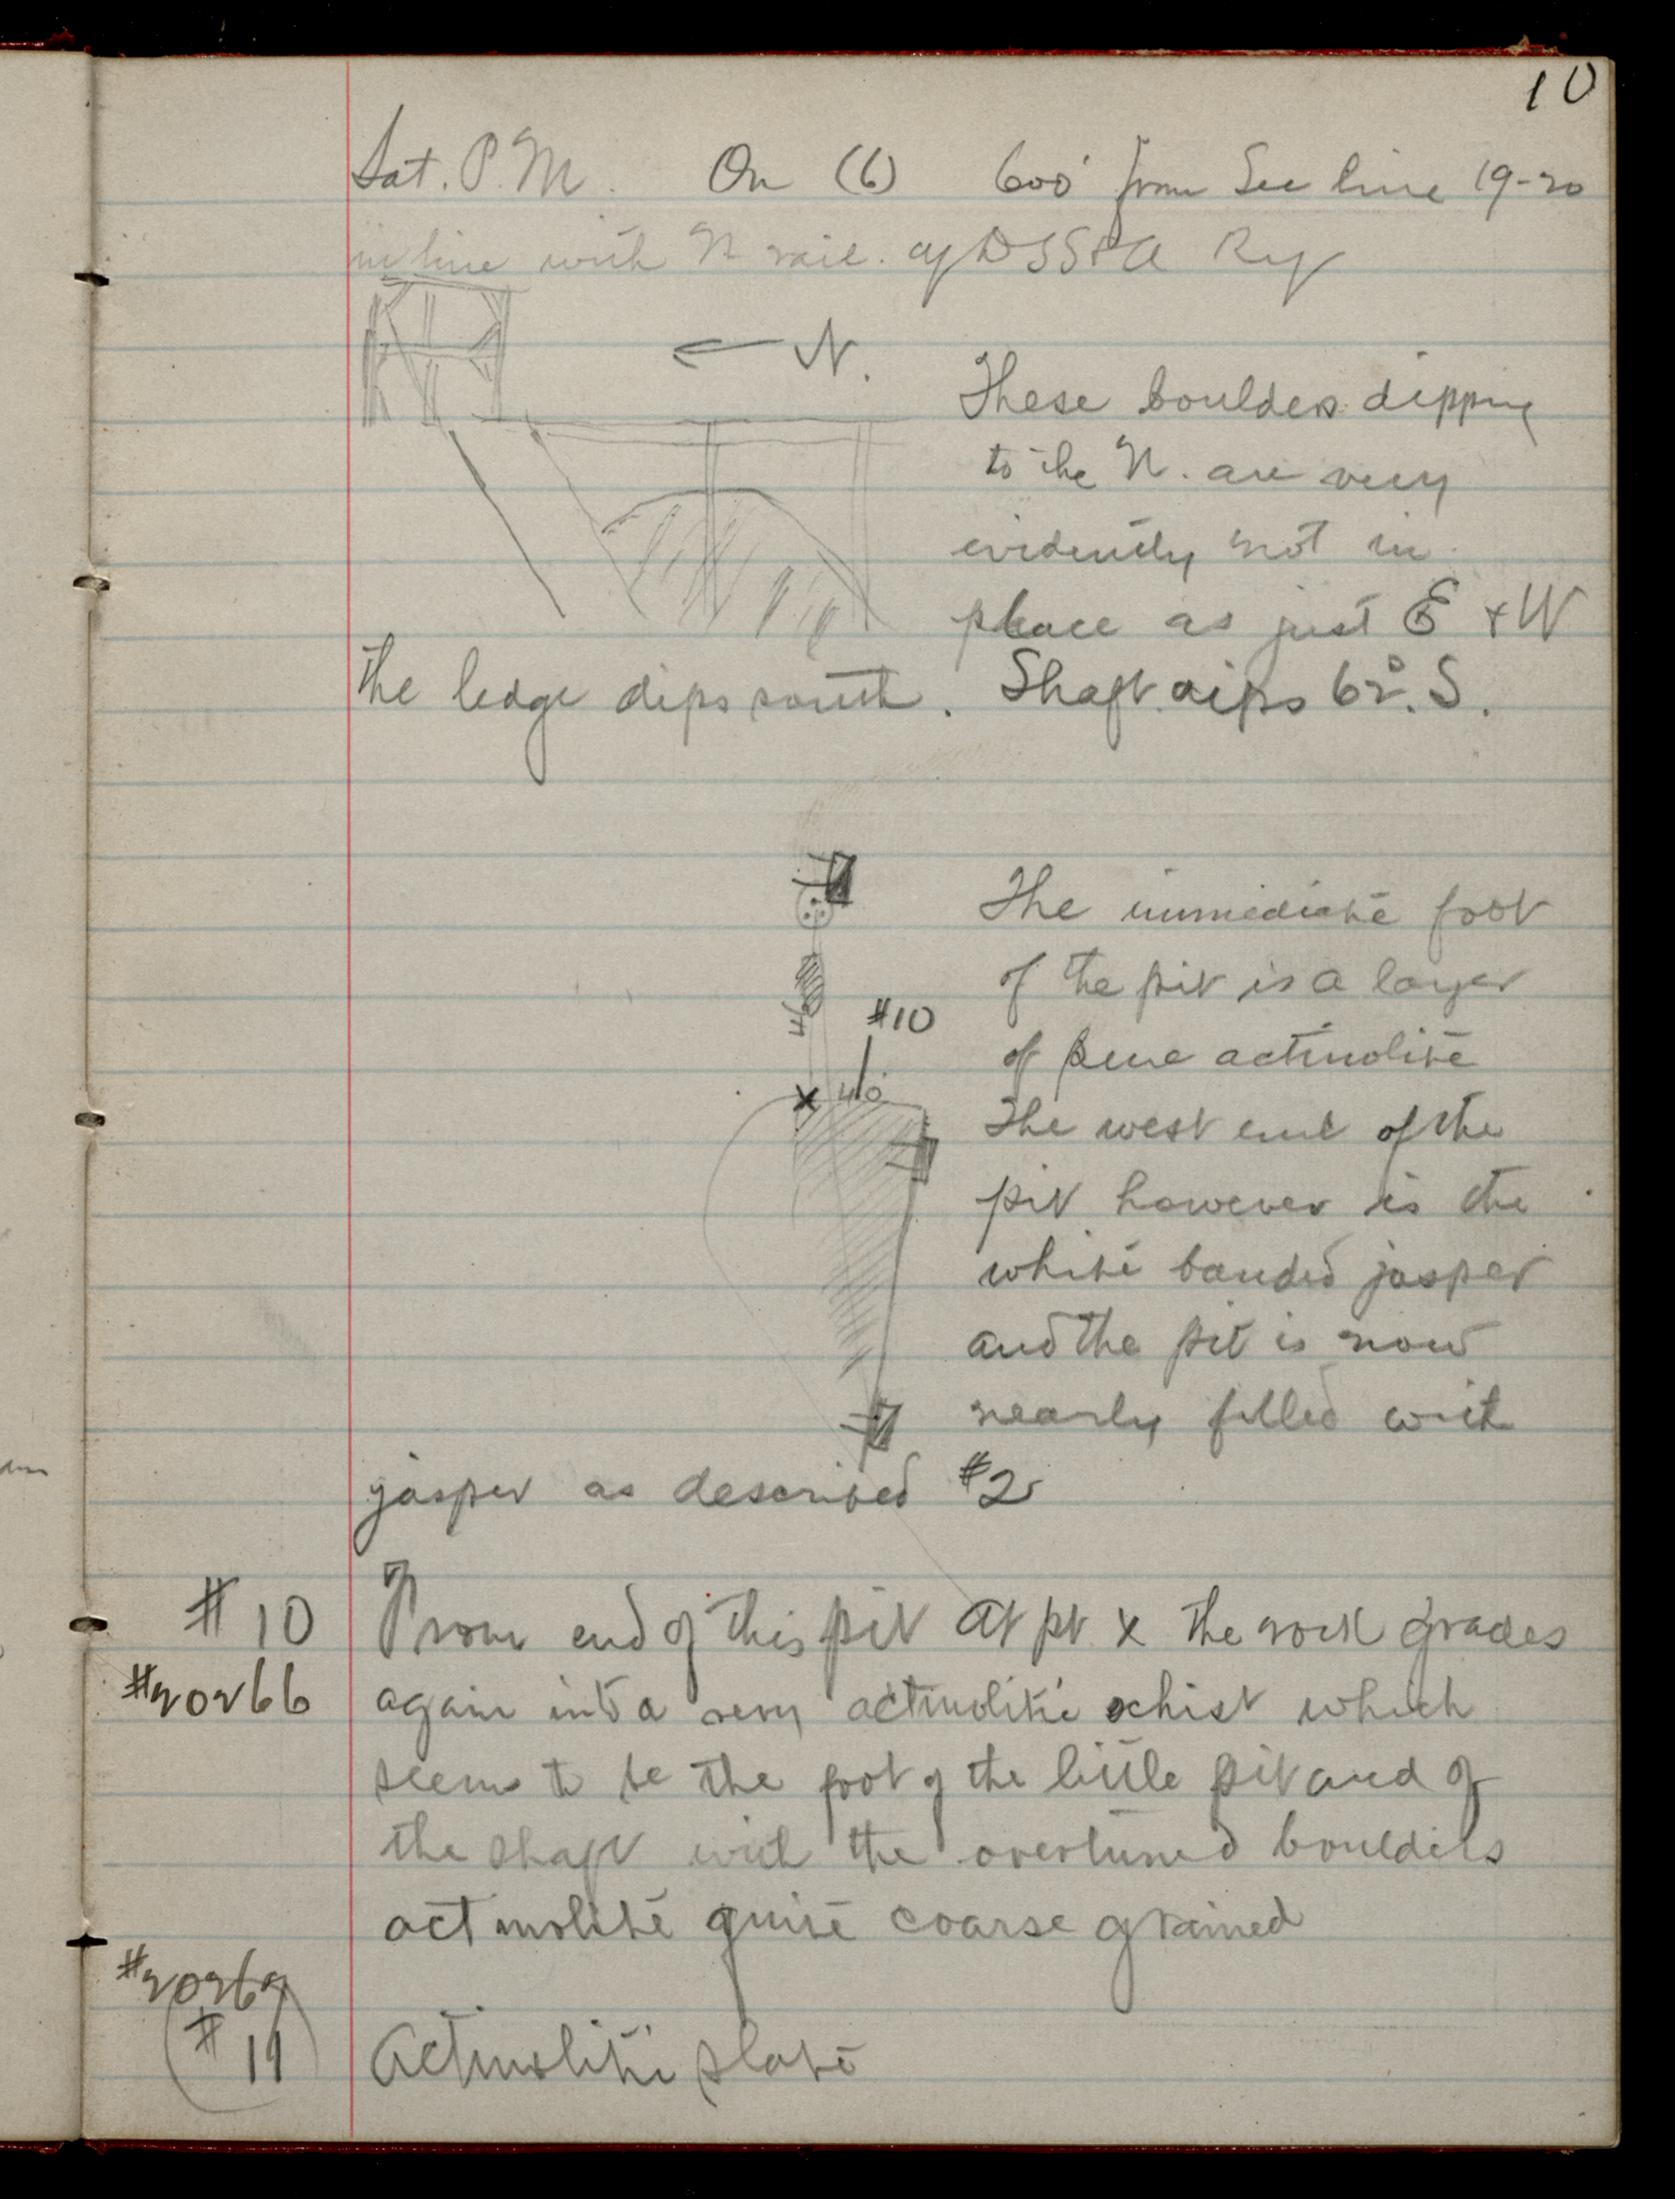 10
Sat. P.M. On (6) 600' from Sec line 19-20
in line with N rail. of DSS&A Ry
← N.
These boulders dipping
to the N. are very
evidently not in
place as just E & W
the ledge dips south. Shaft dips 62°. S.
The immediate foot
of the pit is a layer
#10
of pure actinolite
x 40
The west end of the
pit however is the
white banded jasper
and the pit is now
nearly filled with
jasper as described #2
#10 From end of this pit at pt x the rock grades
#20266 again into a very actinolitic schist which
seems to be the foot of the little pit and of
the shaft with the overturned boulders
actinolite quite coarse grained
#20267
#11 Actinolitic slate